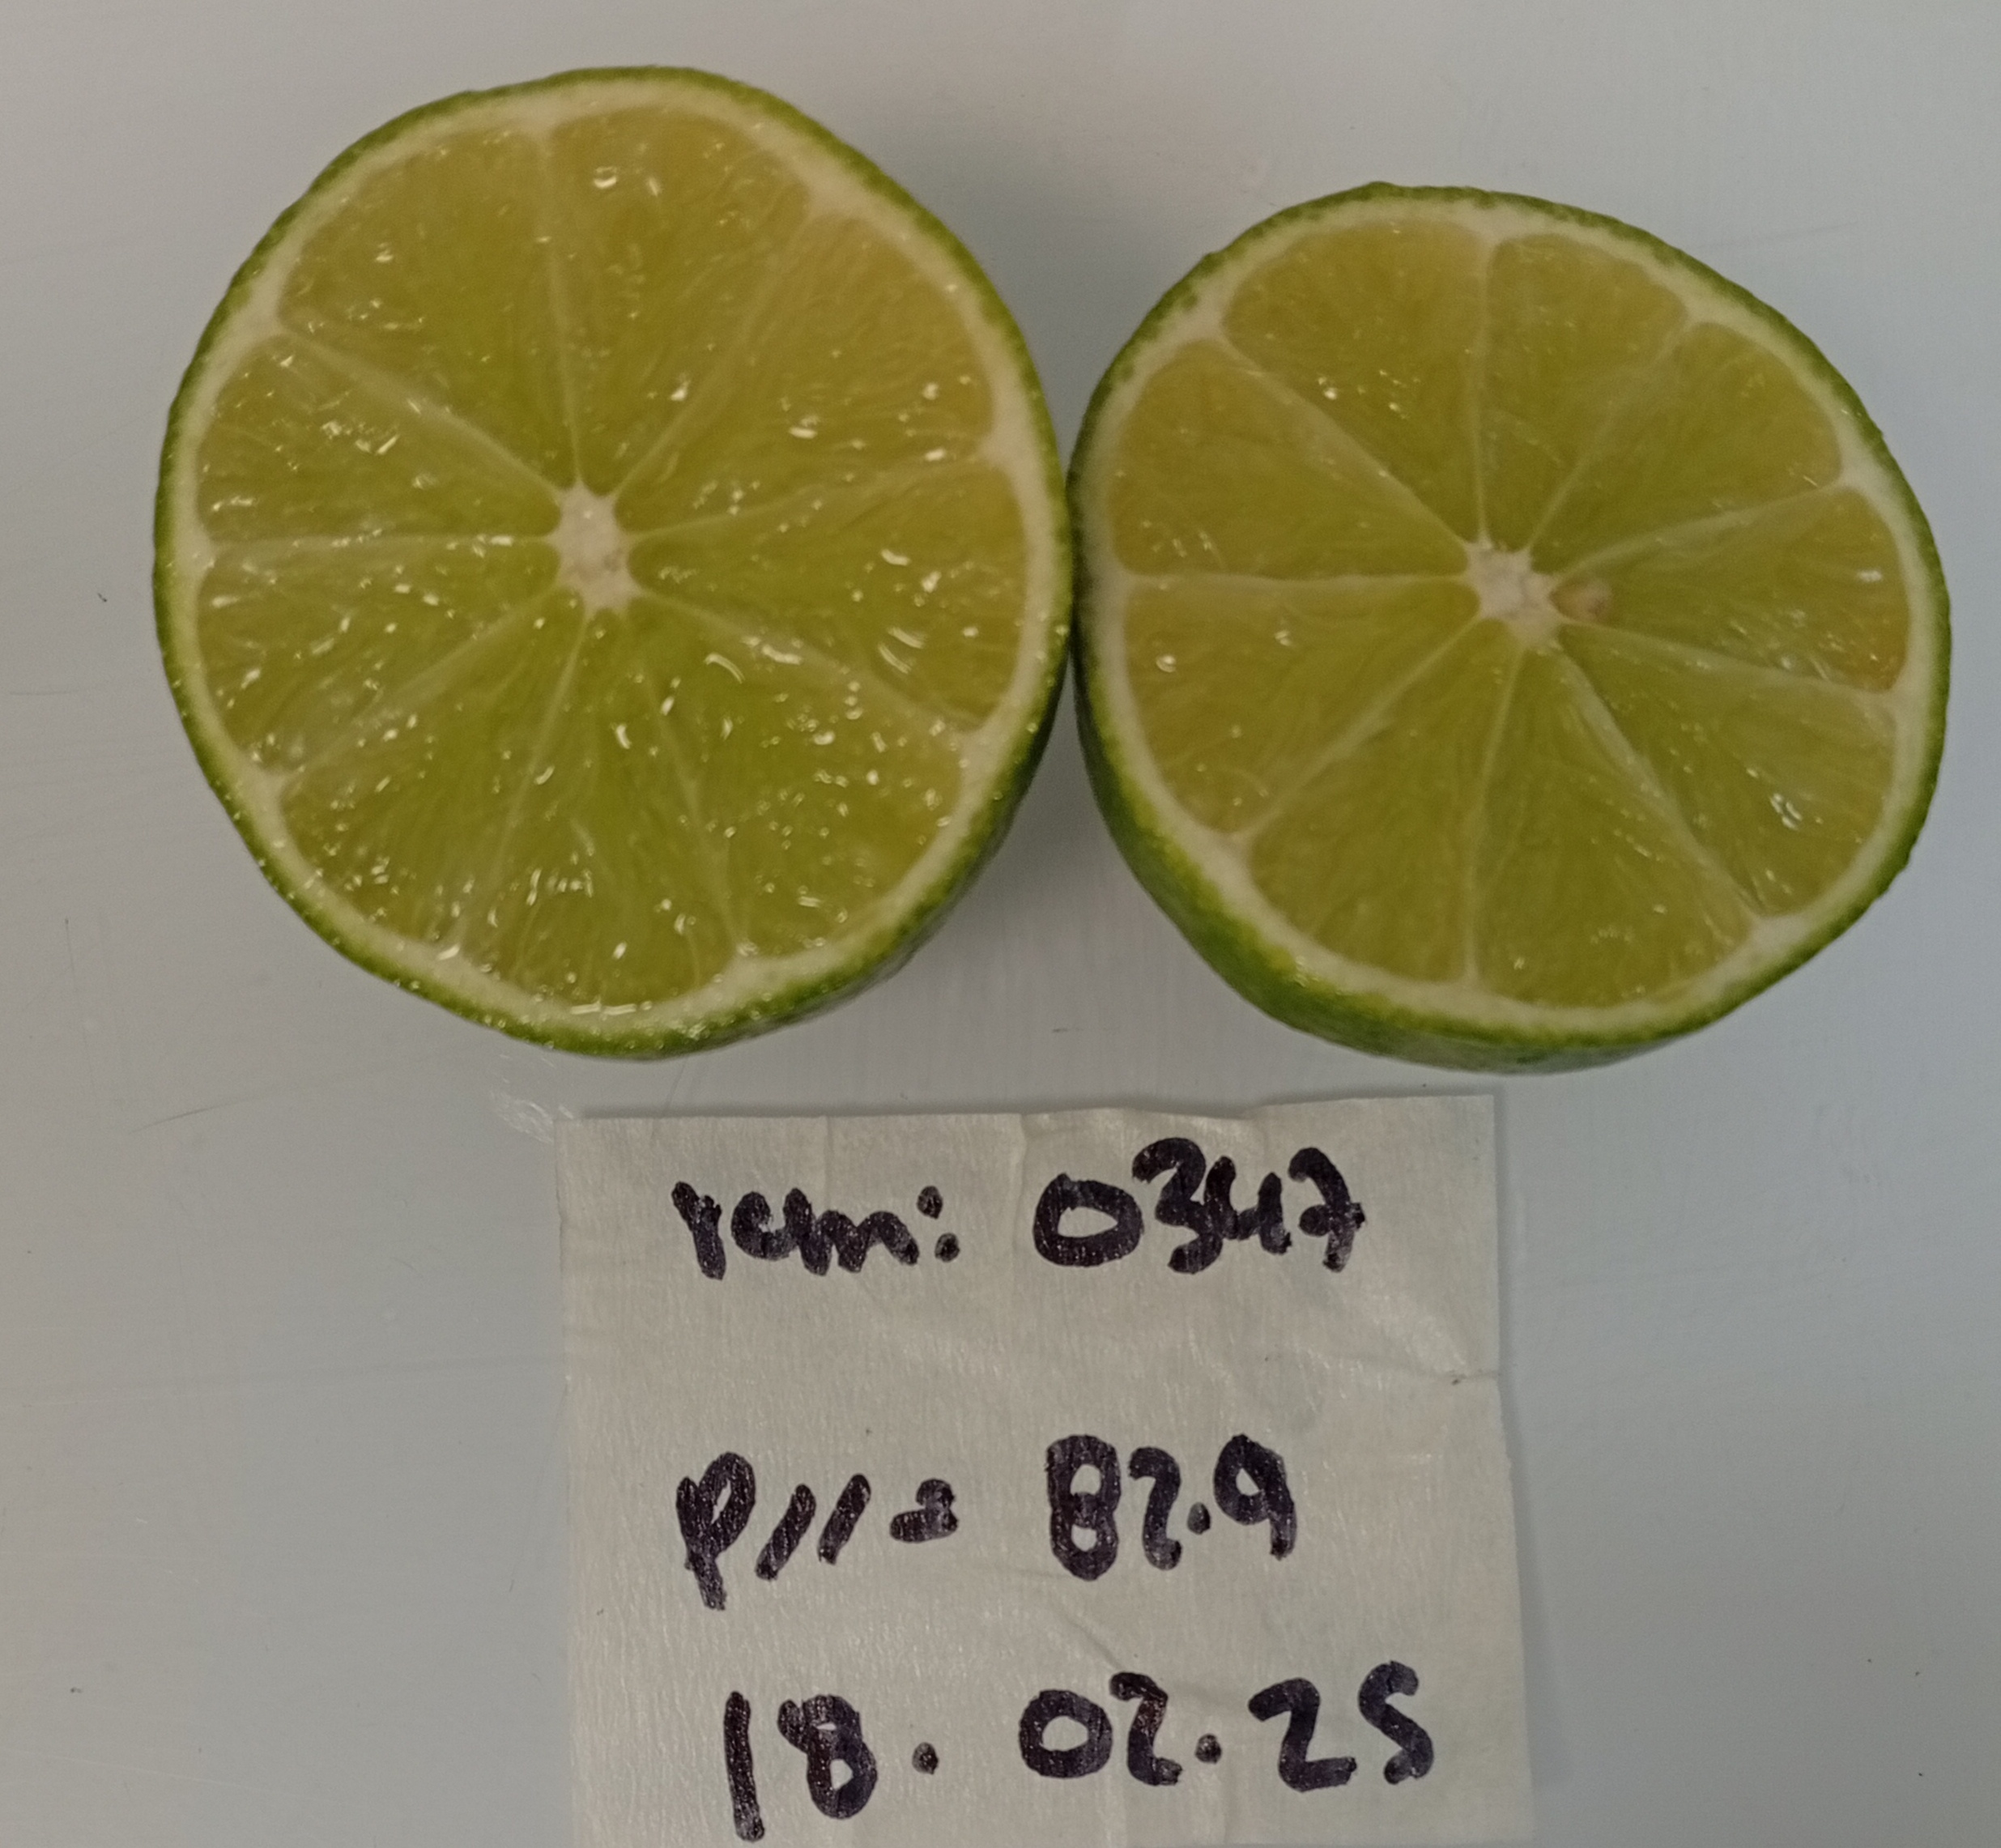 rcm: 0347
P11= 82.9
18.02.25